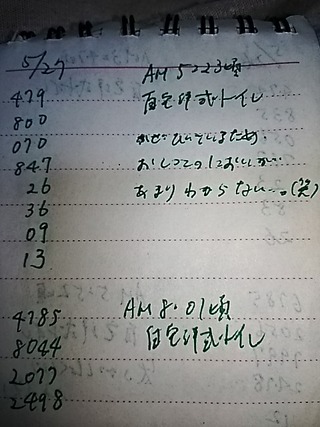 5/27
AM 5:23頃
479 自宅洋式トイレ
800
070 かぜひいているため、
847 おしっこのにおいが、
26 あまりわからない…。(笑)
36
09
13
4785 AM 8:01頃
8044 自宅洋式トイレ
2077
2498